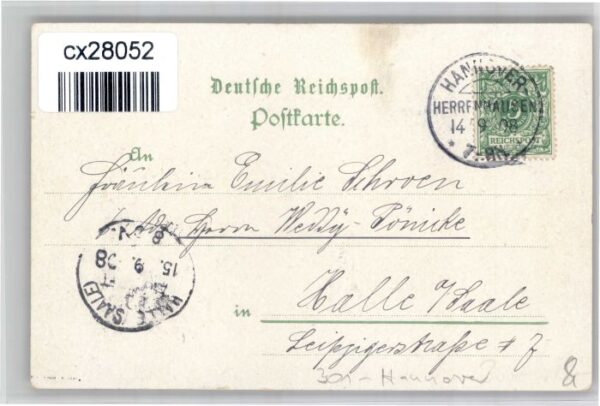 cx28052
Deutsche Reichspost.
Postkarte.
HANNOVER-
HERRENHAUSEN
14 9 98
* 7-8N
REICHSPOST
An
Fräulein Emilie Schroen
Adr. Herrn
8-9V.
15. 9. 98
HALLE (SAALE)
in Halle a/Saale
Leipzigerstraße # 7
301 - Hannover